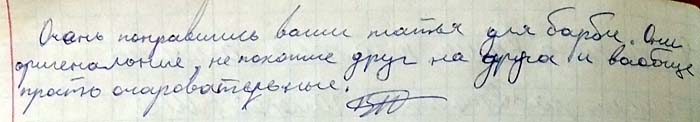 Очань понравились ваши платья для барби. Они
оригенальние, не похошие друг на друга и ваобще
прасть очаровательные.